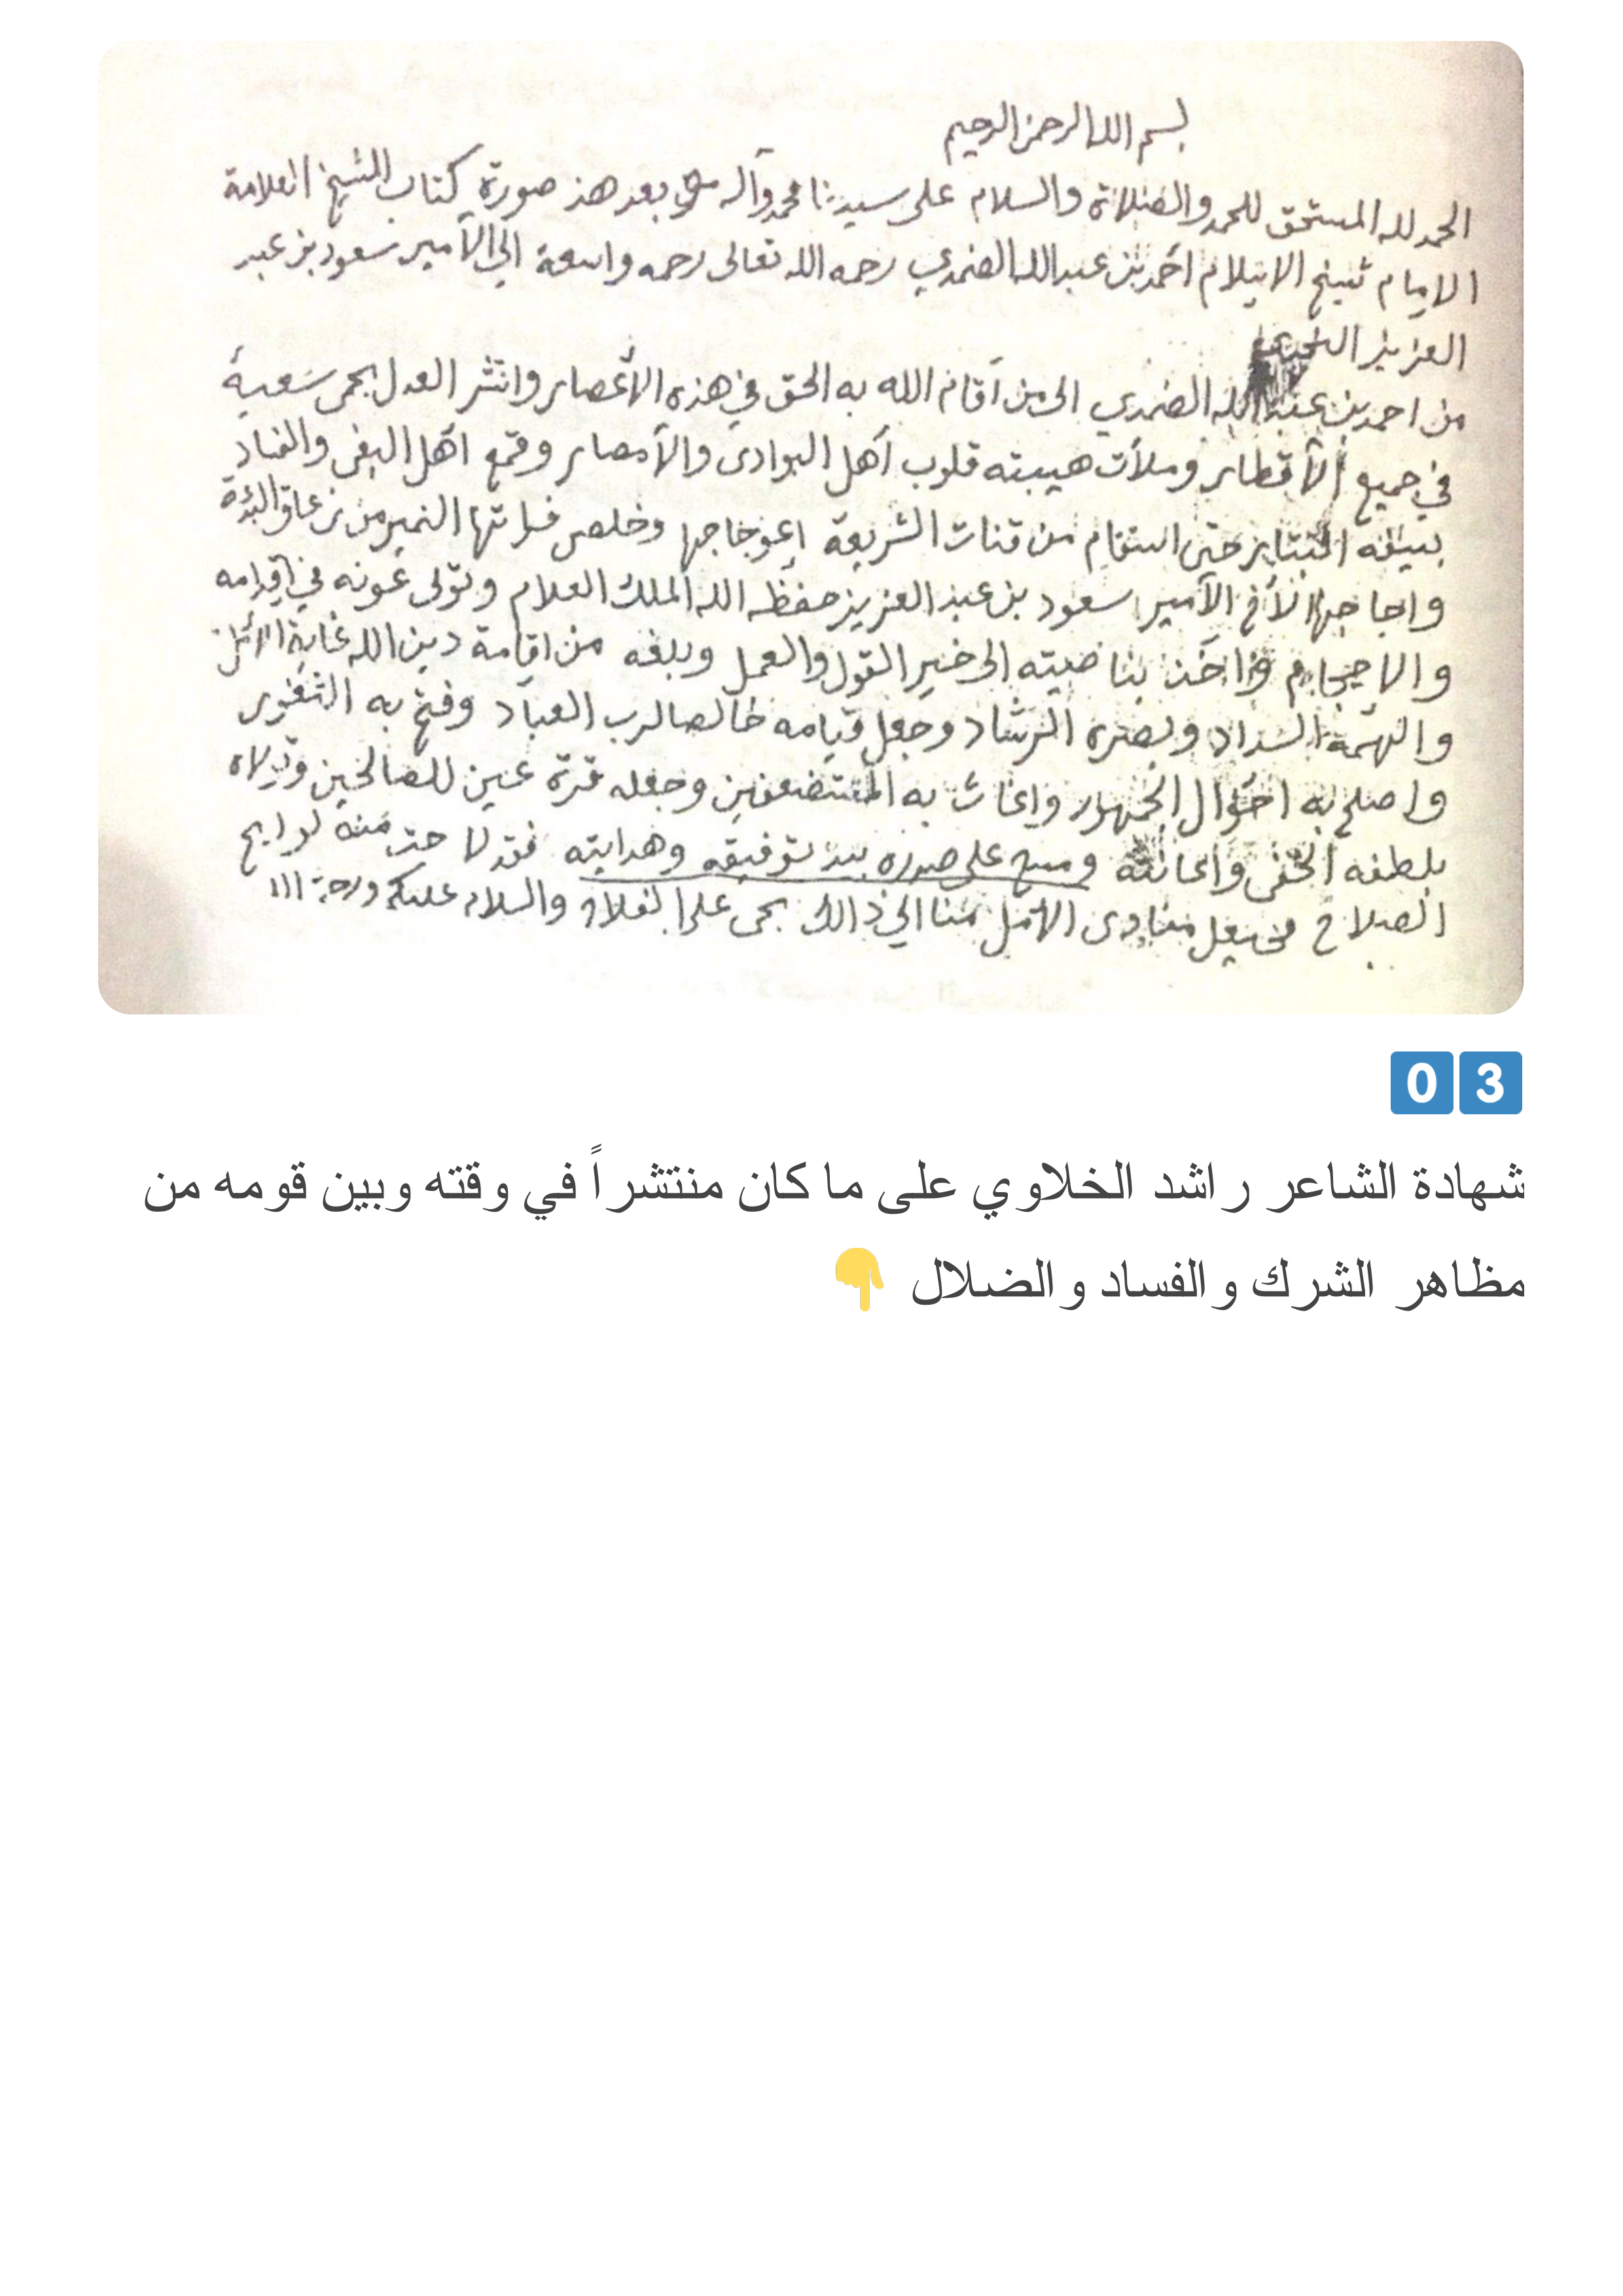 بسم الله الرحمن الرحيم
الحمد لله المستحق للحمد والصلاة والسلام على سيدنا محمد وآله وبعد هذ صورة كتاب الشيخ العلامة
الامام شيخ الاسلام احمد بن عبد الله الضمدي رحمه الله تعالى رحمه واسعة الي الأمير سعود بن عبد
العزيز
من احمد بن عبد الله الضمدي الى من أقام الله به الحق في هذه الأعصار وانتشر العدل بحمى سعيه
في جميع الأقطار وملأت هيبته قلوب أهل البوادى والأمصار وقمع أهل البغى والفساد
بسيفه البتار حتى استقام من قنات الشريعة إعوجاجها وخلص فراتها النمير من زعاق
واجاجها الأخ الأمير سعود بن عبد العزيز حفظه الله الملك العلام وتولى عونه في إقدامه
والإحجام وأخذ بناصيته الى خير القول والعمل وبلغه من اقامة دين الله غاية الأمل
والهمه السداد وبصره الرشاد وجعل قيامه خالصا لرب العباد وفتح به الثغور
واصلح به احوال الجمهور واغاث به المستضعفين وجعله قرة عين للصالحين وتولاه
بلطفه الخفى واعانته ومسح على صدره بيد توفيقه وهدايته فقد لاحت منه لوايح
الصلاح منادى الأمل منا الي ذالك بحى على الفلاح والسلام عليكم ورحمة الله
03
شهادة الشاعر راشد الخلاوي على ما كان منتشراً في وقته وبين قومه من
مظاهر الشرك والفساد والضلال 👇